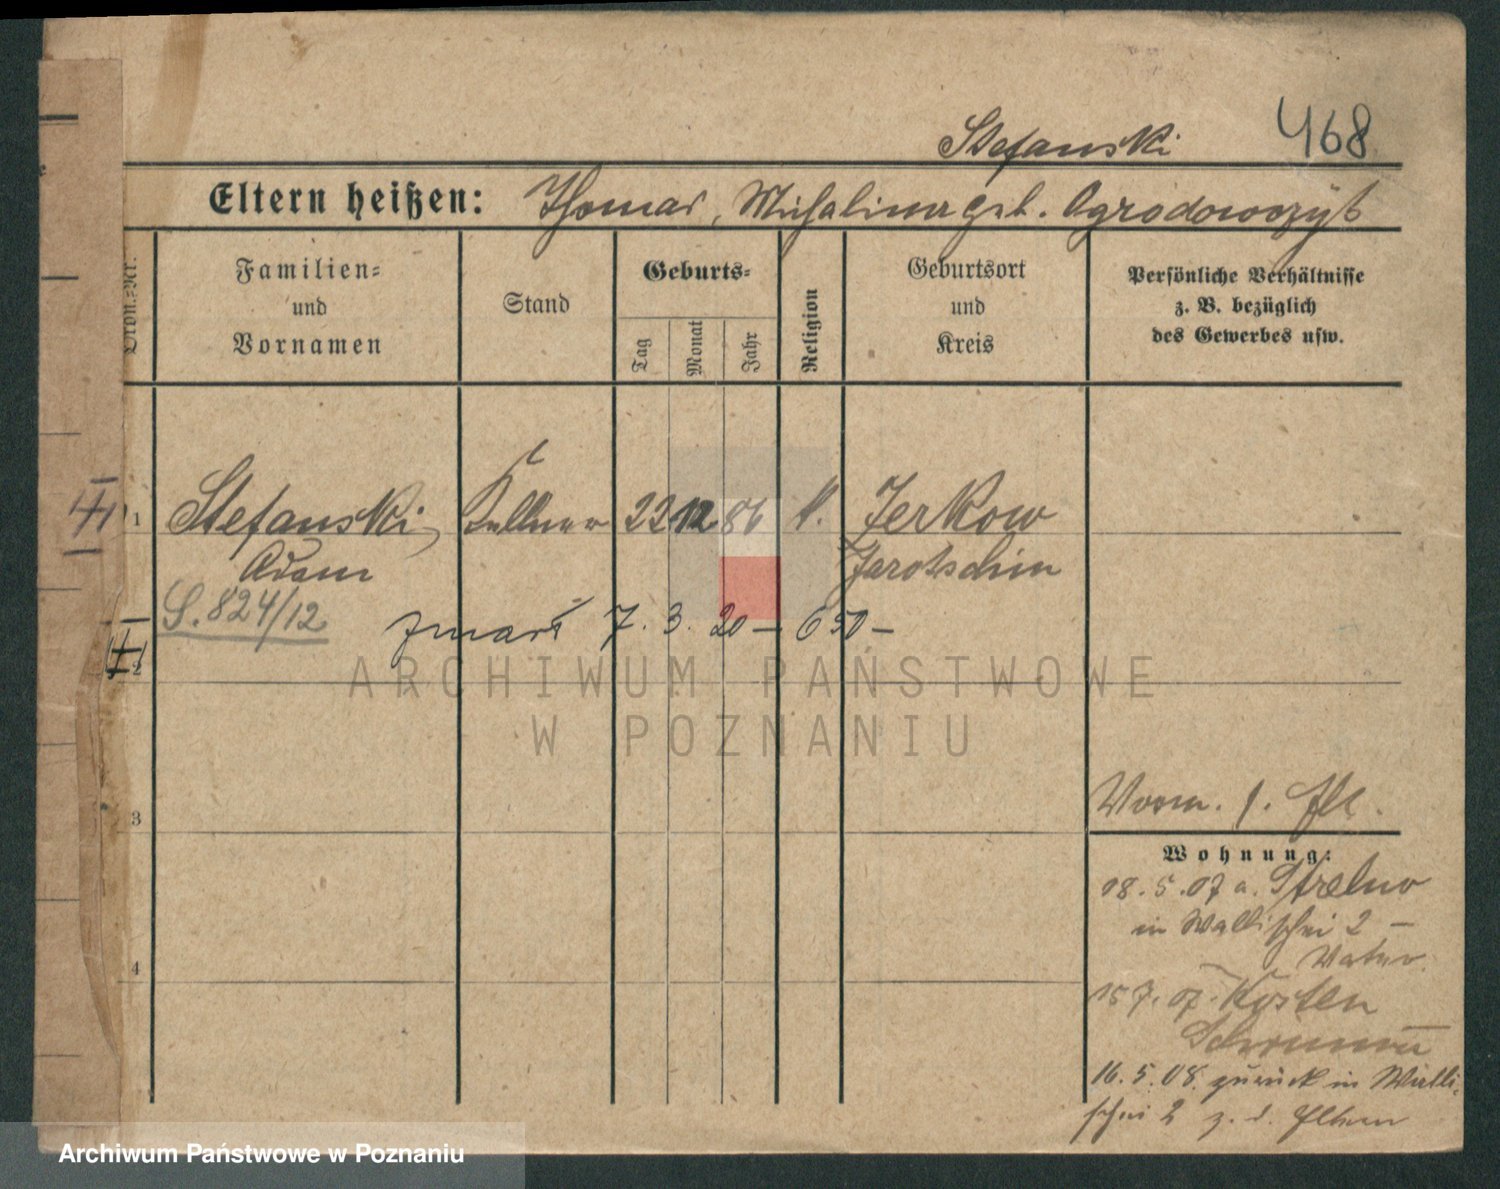 Stefanski 468
Eltern heißen: Thomas, Michalina geb. Ogrodowczyk
Ordn.-Nr.
Familien-
und
Vornamen
Stand
Geburts-
Tag
Monat
Jahr
Religion
Geburtsort
und
Kreis
Persönliche Verhältnisse
z. B. bezüglich
des Gewerbes usw.
1 Stefanski, Kellner 22 12 86 k. Zerkow
Adam Jarotschin
S. 824/12
zmarł 7. 3. 20 – 650 –
2
ARCHIWUM PAŃSTWOWE
W POZNANIU
3
Vorm. 1.
Wohnung:
18. 5. 07 a. Strelno
in Wallischei 2 –
Vater
4
15 7. 07. Kosten
16. 5. 08. zurück in Walli-
schei 2 z. d. Eltern
Archiwum Państwowe w Poznaniu